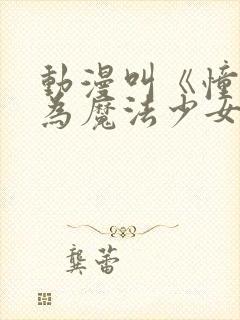 動漫叫《憧
為魔法少女
龔蕾